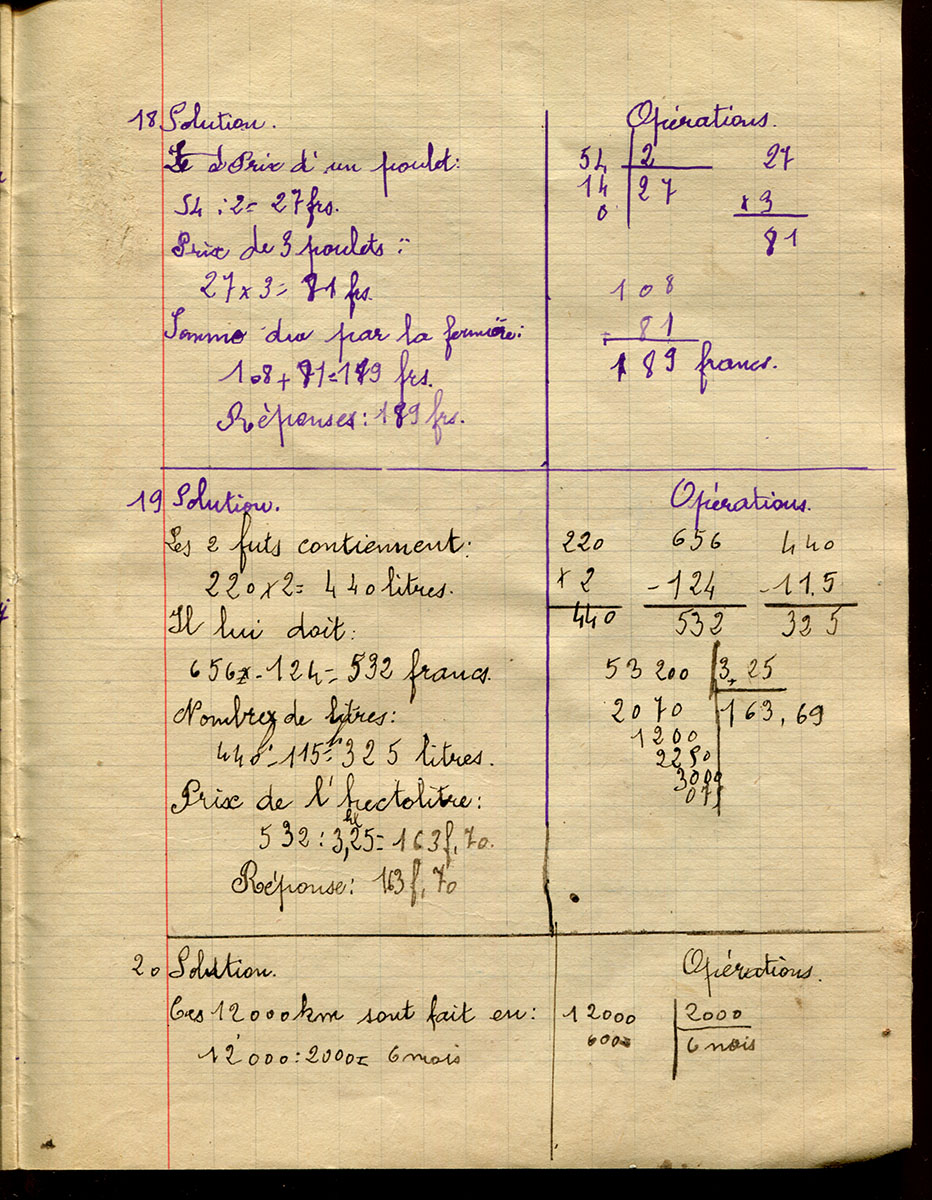 18 Solution.
Prix d'un poulet:
54 : 2 = 27 frs.
Prix de 3 poulets :
27 x 3 = 81 frs.
Somme due par la fermière:
108 + 81 = 189 frs.
Réponses: 189 frs.
Opérations.
54 | 2
14 | 27
0
27
x 3
81
108
+ 81
189 francs.
19 Solution.
Les 2 futs contiennent:
220 x 2 = 440 litres.
Il lui doit:
656 - 124 = 532 francs.
Nombre de litres:
440 - 115 = 325 litres.
Prix de l'hectolitre:
hl
532 : 3,25 = 163f,70.
Réponse: 163f,70
Opérations.
220
x 2
440
656
- 124
532
440
- 115
325
53 200 | 3,25
2070 | 163,69
1200
2250
3000
07
20 Solution.
Ces 12000km sont fait en:
12000 : 2000 = 6 mois
Opérations.
12000 | 2000
6 mois